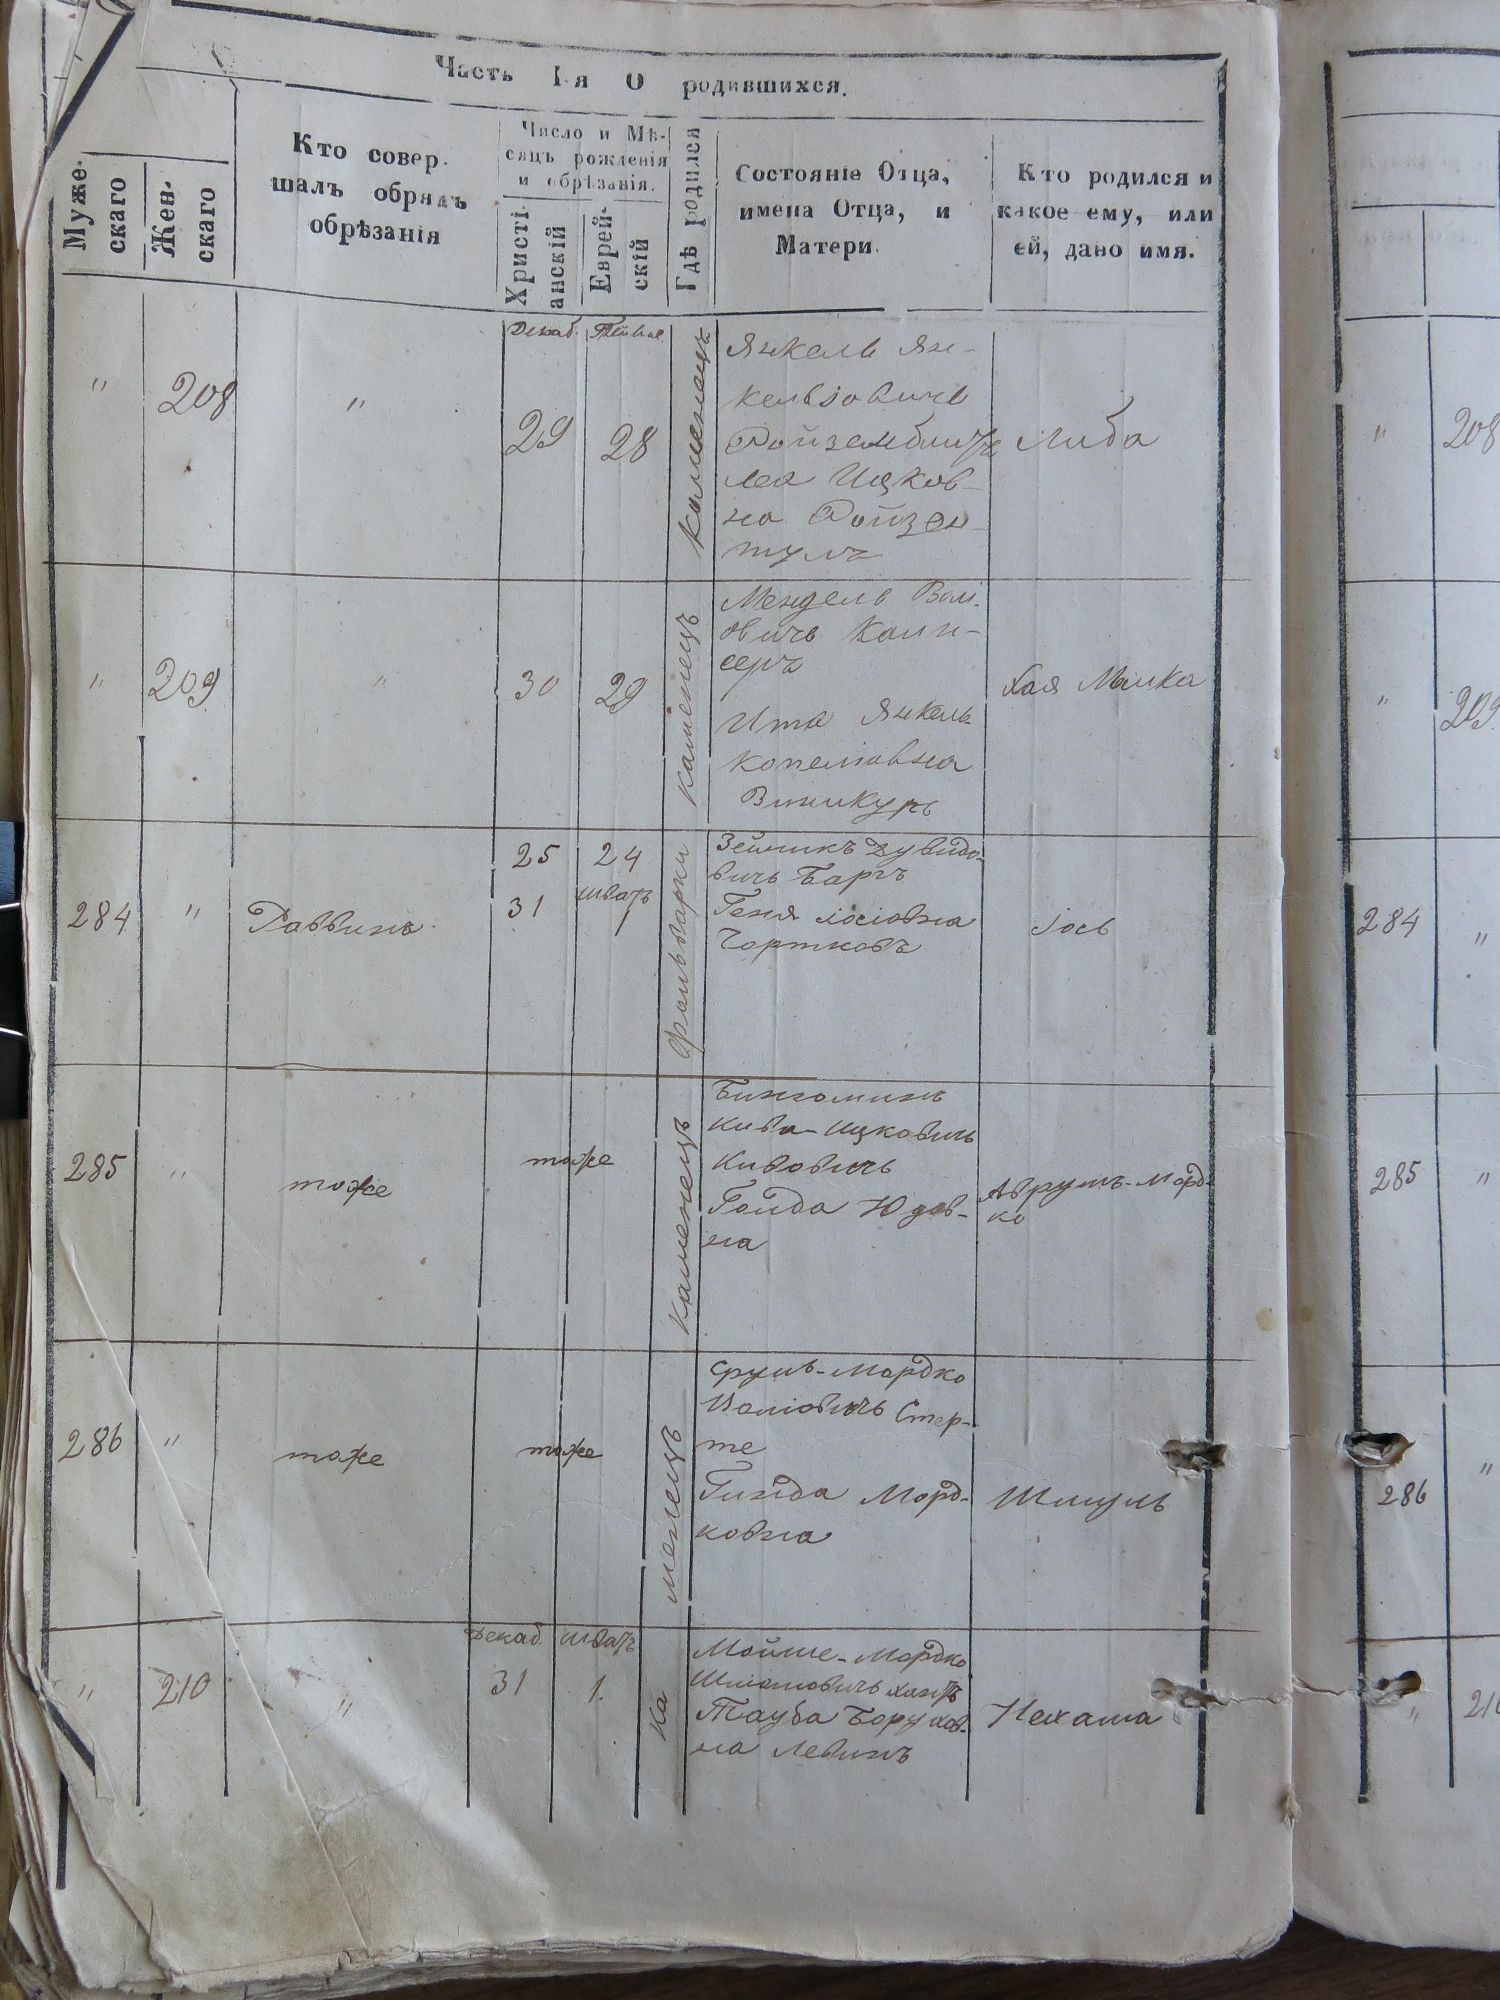 Часть I-я О родившихся.
Муже-
скаго
Жен-
скаго
Кто совер-
шалъ обрядъ
обрѣзанія
Число и Мѣ-
сяцъ рожденія
и обрѣзанія.
Христі-
анскій
Еврей-
скій
Гдѣ родился
Состояніе Отца,
имена Отца, и
Матери.
Кто родился и
какое ему, или
ей, дано имя.
" 208 "
Декаб.
29
28
Каменецъ
Янкель Ян-
кельовичъ
Ройзенблитъ
Леа Ицков-
на Ройзен-
тулъ
Либа
" 209 "
30 29
каменецъ
Мендель Вол-
овичъ
Ита Янкель
Копелювна
Винокуръ
Хая Малка
284 " Раввинъ
25 24
31 шватъ
1
Фольварки
Зейликъ Дувидо-
вичъ Баргъ
Геня Іосіовна
Чортковъ
Іось
285 " тоже
тоже
Каменецъ
Кива-Ицковичъ
Кивовичъ
Голда Юдов-
на
Аврумъ-Морд-
ко
286 " тоже
тоже
Каменецъ
Сруль-Мордко
Стер-
те
Гинда Морд-
ковна
Шмуль
" 210 "
Декаб. шватъ
31 1.
Мойше-Мордко
Тауба Борухов-
на Левинъ
Нехама
" 208
" 209
284 "
285 "
286 "
" 210